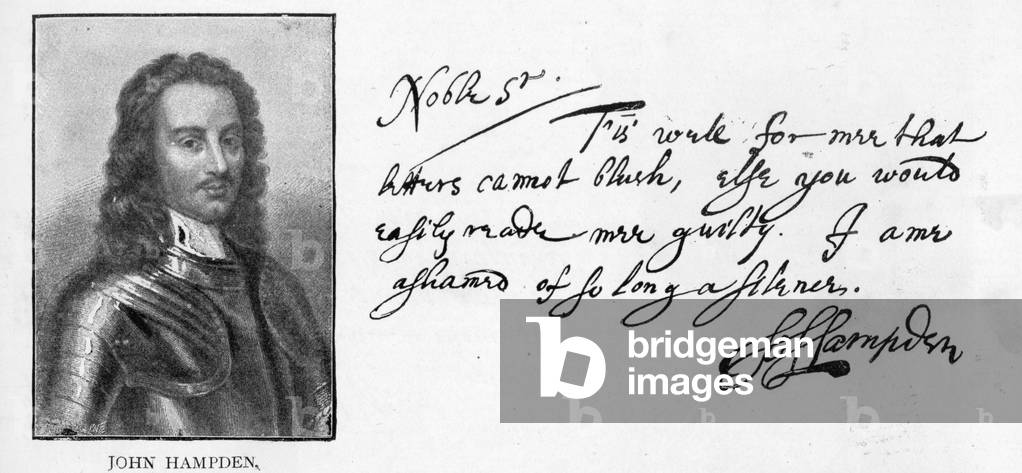 JOHN HAMPDEN.
Noble Sr.
T'is well for mee that
letters cannot blush, else you would
easily reade mee guilty. I ame
ashamed of so long a silence.
Jo Hampden
b bridgeman
images